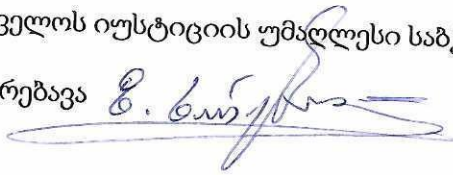 ველოს იუსტიციის უმაღლესი საბ
რებავა